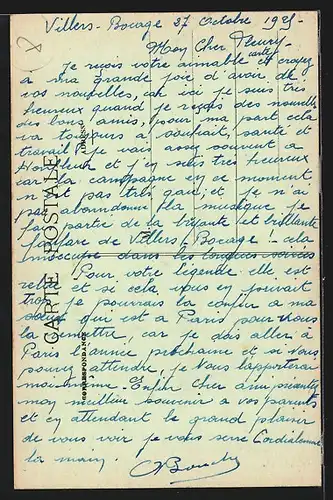 Villers-Bocage 27 Octobre 1925
Mon Cher Fleury
Je reçois votre aimable carte et croyez
a ma grande joie d'avoir de
vos nouvelles, car ici je suis très
heureux quand je reçois des nouvelles
des bons amis, pour ma part cela
va toujours a souhait, santé et
travail je vais assez souvent a
Honfleur et j'en suis très heureux
car la campagne en ce moment
n'est pas très gai; et je n'ai
pas abandonné la musique je
fais partie de la bruyante et brillante
fanfare de Villers-Bocage cela
m'occupe dans les longues soirées
Pour votre légende elle est
et si cela vous en pouvait
trop je pourrais la confier a ma
sœur qui est a Paris pour vous
la remettre, car je dois aller à
Paris l'année prochaine et si vous
pouvez attendre, je vous l'apporterai
moi-même. Enfin Cher ami présentez
mon meilleur souvenir a vos parents
et en attendant le grand plaisir
de vous voir je vous serre Cordialement
la main,
CARTE POSTALE
CORRESPONDANCE